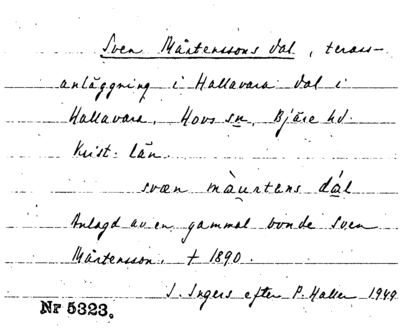 Sven Mårtenssons dal, terass-
anläggning i Hallavara dal i
Hallavara. Hovs sn, Bjäre hd.
Krist. län.
svæn màurtens dál
Anlagd av en gammal bonde Sven
Mårtensson. † 1890.
I. Ingers efter P. Haller 1949
Nr 5323.